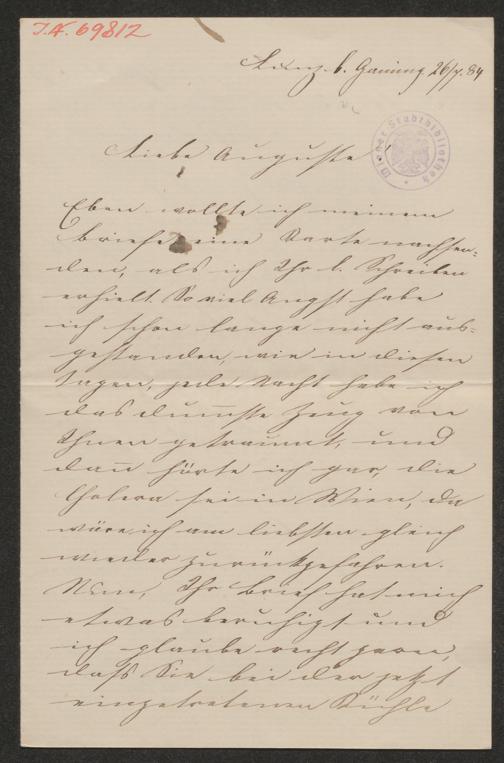 I.N. 69812
Lunz b. Gaming 26/7. 84
Wiener Stadtbibliothek
Liebe Auguste!
Eben wollte ich meinem
Briefe eine Karte nachsen=
den, als ich Ihr l. Schreiben
erhielt. So viel Angst habe
ich schon lange nicht aus-
gestanden, wie in diesen
Tagen, jede Nacht habe ich
das dum̅ste Zeug von
Ihnen geträumt, und
dan̅ hörte ich gar, die
Cholera sei in Wien, da
wäre ich am liebsten gleich
wieder zurückgefahren.
Nun, Ihr Brief hat mich
etwas beruhigt und
ich glaube recht gern,
daß Sie bei der jetzt
eingetretenen Kühle